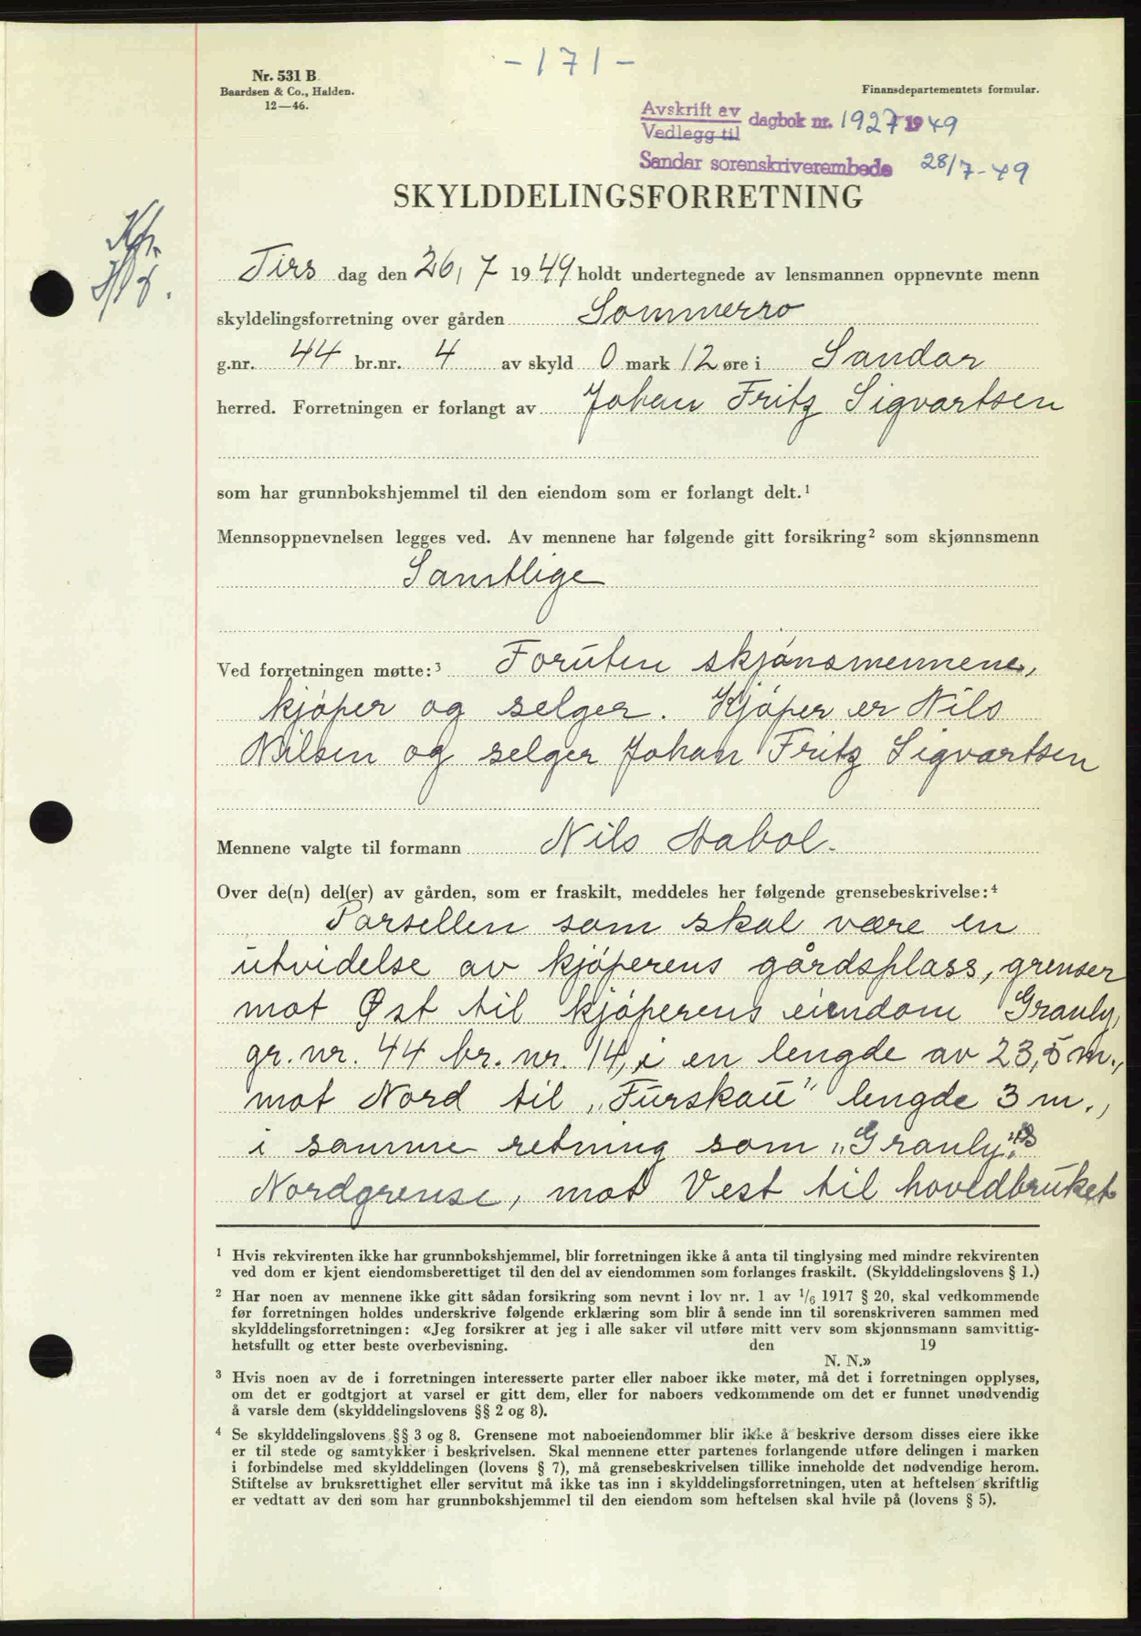 - 171 -
Nr. 531 B
Baardsen & Co., Halden.
12—46.
Finansdepartementets formular.
Avskrift av
Vedlegg til
dagbok nr. 1927 1949
Sandar sorenskriverembede 28/7-49
SKYLDDELINGSFORRETNING
Tirs dag den 26, 7 1949 holdt undertegnede av lensmannen oppnevnte menn
skyldelingsforretning over gården Sommerro
g.nr. 44 br.nr. 4 av skyld 0 mark 12 øre i Sandar
herred. Forretningen er forlangt av Johan Fritz Sigvartsen
som har grunnbokshjemmel til den eiendom som er forlangt delt.¹
Mennsoppnevnelsen legges ved. Av mennene har følgende gitt forsikring² som skjønnsmenn
Samtlige
Ved forretningen møtte:³ Foruten skjønsmennene,
kjøper og selger. Kjøper er Nils
Nilsen og selger Johan Fritz Sigvartsen
Mennene valgte til formann Nils
Over de(n) del(er) av gården, som er fraskilt, meddeles her følgende grensebeskrivelse:⁴
Parsellen som skal være en
utvidelse av kjøperens gårdsplass, grenser
mot Øst til kjøperens eiendom Granly,
gr. nr. 44 br. nr. 14, i en lengde av 23,5 m.,
mot Nord til „Furskau" lengde 3 m.,
i samme retning som „Granly"s
Nordgrense, mot Vest til hovedbruket
¹ Hvis rekvirenten ikke har grunnbokshjemmel, blir forretningen ikke å anta til tinglysing med mindre rekvirenten
ved dom er kjent eiendomsberettiget til den del av eiendommen som forlanges fraskilt. (Skylddelingslovens § 1.)
² Har noen av mennene ikke gitt sådan forsikring som nevnt i lov nr. 1 av 1/6 1917 § 20, skal vedkommende
før forretningen holdes underskrive følgende erklæring som blir å sende inn til sorenskriveren sammen med
skylddelingsforretningen: «Jeg forsikrer at jeg i alle saker vil utføre mitt verv som skjønnsmann samvittig-
hetsfullt og etter beste overbevisning. den 19
N. N.»
³ Hvis noen av de i forretningen interesserte parter eller naboer ikke møter, må det i forretningen opplyses,
om det er godtgjort at varsel er gitt dem, eller for naboers vedkommende om det er funnet unødvendig
å varsle dem (skylddelingslovens §§ 2 og 8).
⁴ Se skylddelingslovens §§ 3 og 8. Grensene mot naboeiendommer blir ikke å beskrive dersom disses eiere ikke
er til stede og samtykker i beskrivelsen. Skal mennene etter partenes forlangende utføre delingen i marken
i forbindelse med skylddelingen (lovens § 7), må grensebeskrivelsen tillike inneholde det nødvendige herom.
Stiftelse av bruksrettighet eller servitut må ikke tas inn i skylddelingsforretningen, uten at heftelsen skriftlig
er vedtatt av den som har grunnbokshjemmel til den eiendom som heftelsen skal hvile på (lovens § 5).